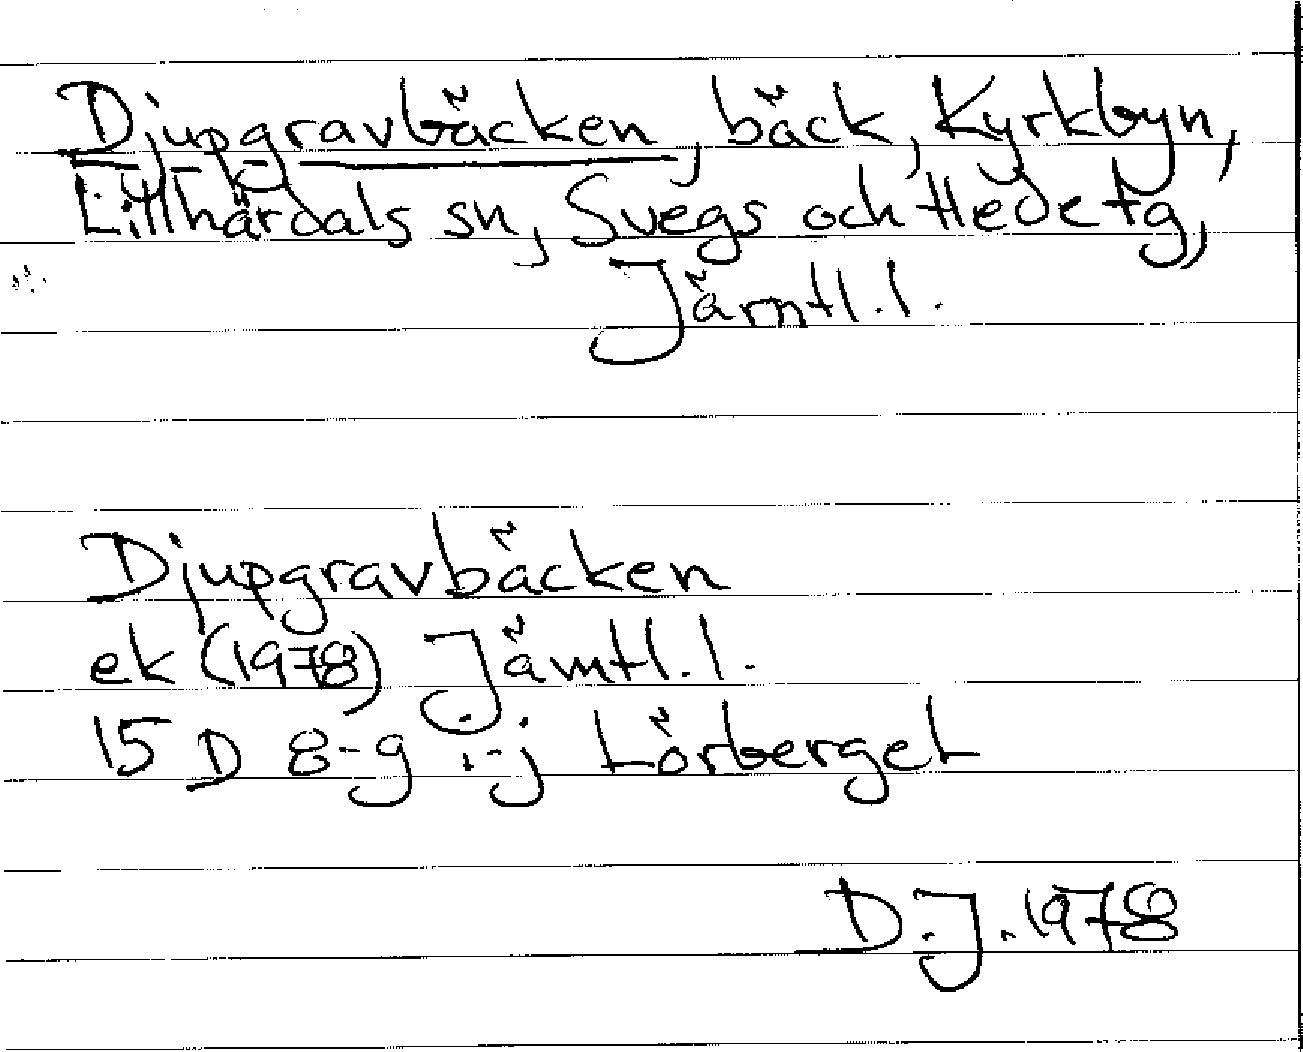 Djupgravbäcken, bäck, Kyrkbyn,
Lillhärdals sn, Svegs och Hede tg,
Jämtl. l.
Djupgravbäcken
ek (1978) Jämtl. l.
15 D 8-g i-j Lörberget
D.J. 1978